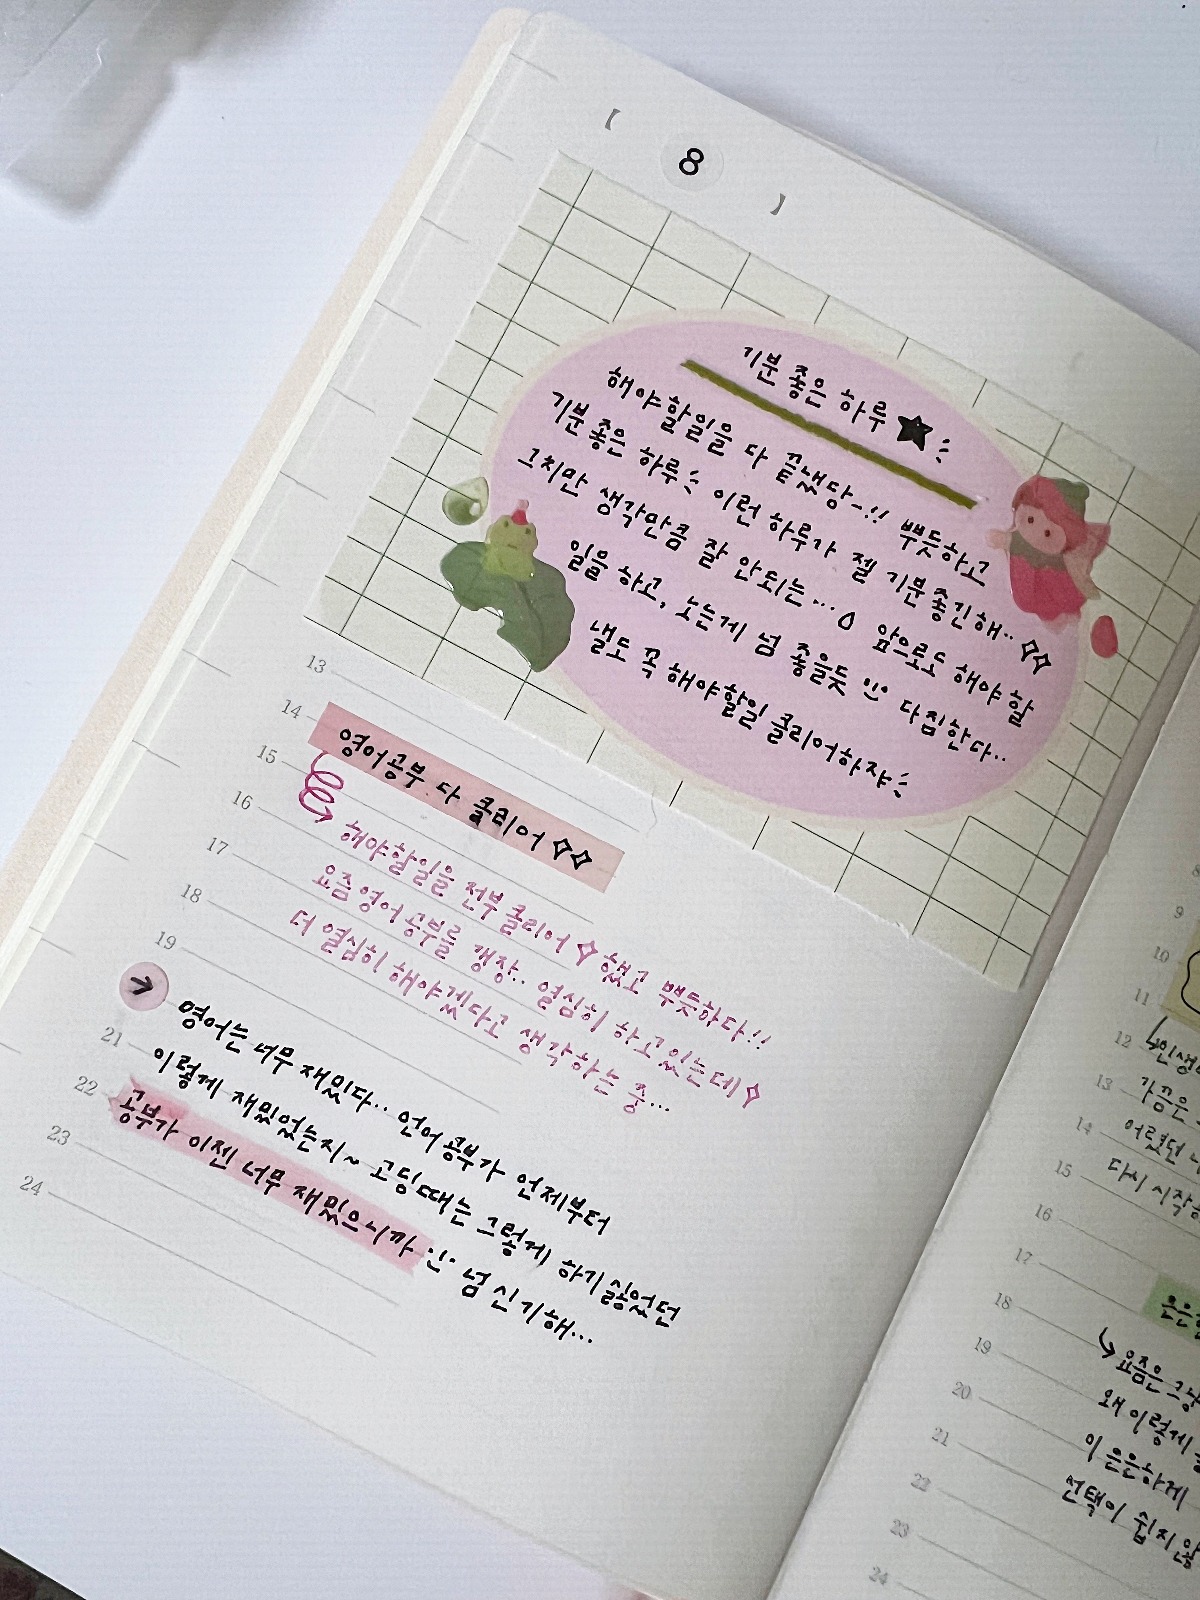 【 8 】
기분 좋은 하루 ★
해야할일을 다 끝냈당~!! 뿌듯하고
기분 좋은 하루 이런 하루가 젤 기분좋긴해..
그치만 생각만큼 잘 안되는... 앞으로도 해야 할
일을 하고, 노는게 넘 좋을듯 다짐한다..
낼도 꼭 해야할일 클리어하쟈
13
14
영어공부 다 클리어
15
16
해야할일을 전부 클리어 했고 뿌듯하다!!
17
요즘 영어공부를 갱장.. 열심히 하고있는데
18
더 열심히 해야겠다고 생각하는 중...
19
→ 영어는 너무 재밌다.. 언어공부가 언제부터
21
이렇게 재밌었는지~ 고딩때는 그렇게 하기싫었던
22
공부가 이젠 너무 재밌으니까 넘 신기해...
23
24
9
10
11
12
13
가끔은
14
어렸던
15
다시 시작
16
17
18
19
요즘은 그냥
20
왜 이렇게
21
이 은은하게
22
선택이 쉽지
23
24